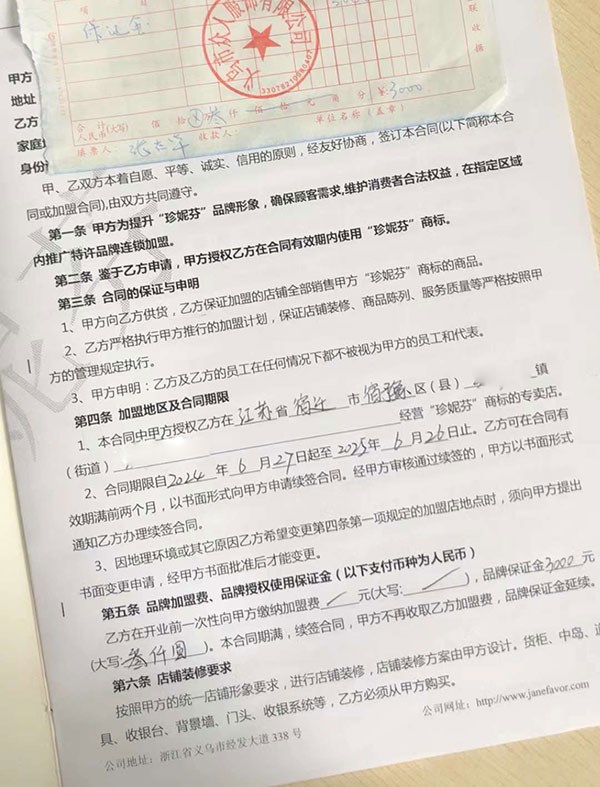 项目
保证金
联 收据
义乌市众人服饰有限公司
3307821090407
合计
人民币(大写) 佰 拾 万 叁 仟 佰 拾 元 角 分 ￥3000
收款人： 单位名称（盖章）
甲方
地址
乙方
家庭
身份
甲、乙双方本着自愿、平等、诚实、信用的原则，经友好协商，签订本合同(以下简称本合
同或加盟合同),由双方共同遵守。
第一条 甲方为提升“珍妮芬”品牌形象，确保顾客需求,维护消费者合法权益，在指定区域
内推广特许品牌连锁加盟。
第二条 鉴于乙方申请，甲方授权乙方在合同有效期内使用“珍妮芬”商标。
第三条 合同的保证与申明
1、甲方向乙方供货，乙方保证加盟的店铺全部销售甲方“珍妮芬”商标的商品。
2、乙方严格执行甲方推行的加盟计划，保证店铺装修、商品陈列、服务质量等严格按照甲
方的管理规定执行。
3、甲方申明：乙方及乙方的员工在任何情况下都不被视为甲方的员工和代表。
第四条 加盟地区及合同期限
1、本合同中甲方授权乙方在 江苏 省 宿迁 市 宿豫 区（县） 镇
（街道） 经营“珍妮芬”商标的专卖店。
2、合同期限自2024 年 6 月 27日起至 2025年 6 月 26日止。乙方可在合同有
效期满前两个月，以书面形式向甲方申请续签合同。经甲方审核通过续签的，甲方以书面形式
通知乙方办理续签合同。
3、因地理环境或其它原因乙方希望变更第四条第一项规定的加盟店地点时，须向甲方提出
书面变更申请，经甲方书面批准后才能变更。
第五条 品牌加盟费、品牌授权使用保证金（以下支付币种为人民币）
乙方在开业前一次性向甲方缴纳加盟费 / 元(大写: / )，品牌保证金3000 元
(大写: 叁仟圆 )。本合同期满，续签合同，甲方不再收取乙方加盟费，品牌保证金延续。
第六条 店铺装修要求
按照甲方的统一店铺形象要求，进行店铺装修，店铺装修方案由甲方设计。货柜、中岛、道
具、收银台、背景墙、门头、收银系统等，乙方必须从甲方购买。
公司地址：浙江省义乌市经发大道 338 号 公司网址：http://www.janefavor.com